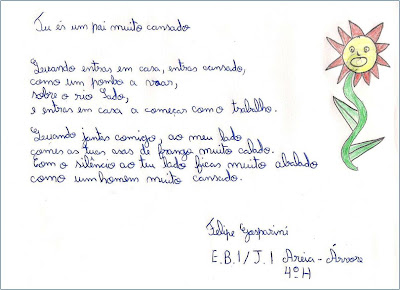 Tu és um pai muito cansado
Quando entras em casa, entras cansado,
como um pombo a voar,
sobre o rio Sado,
e entras em casa a começar como trabalho.
Quando jantas comigo, ao meu lado
comes as tuas asas de frango muito calado.
Com o silêncio ao teu lado ficas muito abalado
como um homem muito cansado.
Felipe Gasparini
E.B.1/J.I Areia-Árvore
4ºH